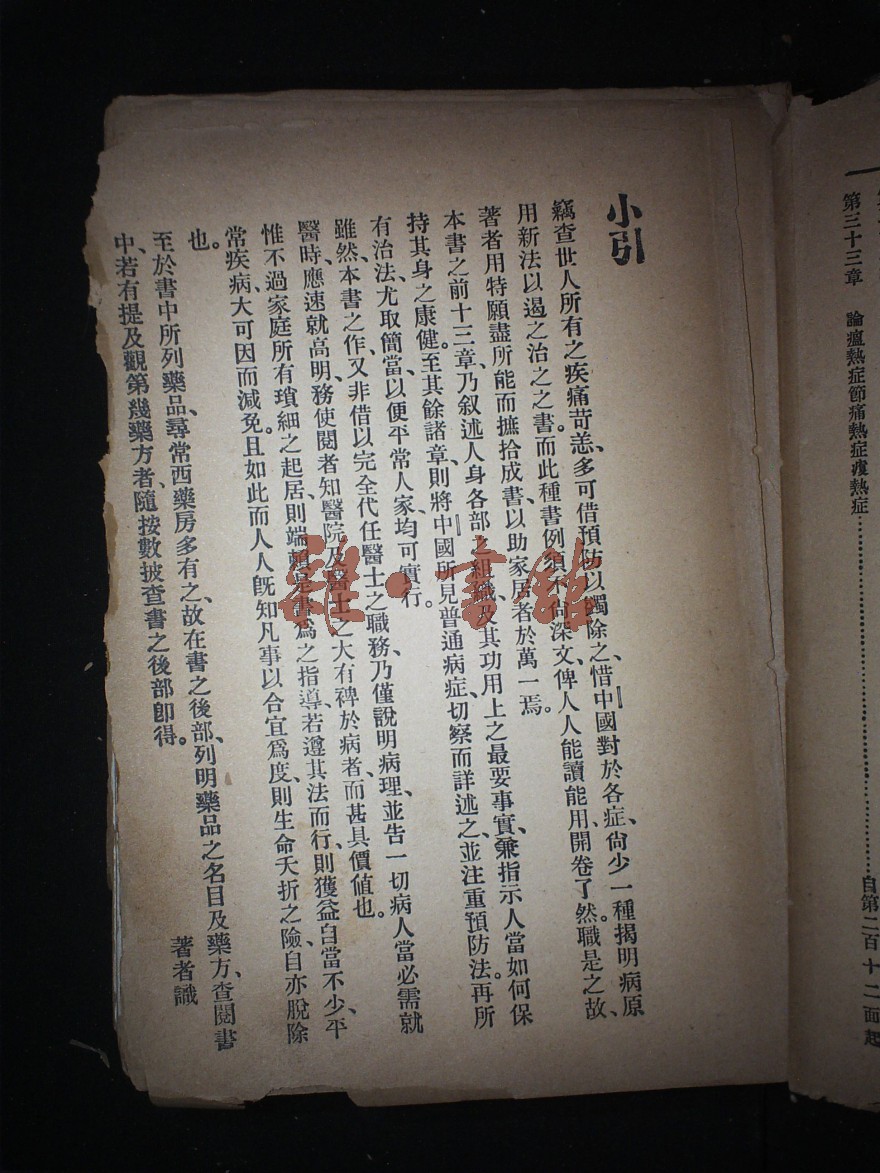 第三十三章　論瘟熱症節痛熱症瘧熱症……………………自第二百十二面起
小引
竊查世人所有之疾痛苛恙、多可借預防以蠲除之、惜中國對於各症、尙少一種揭明病原、
用新法以遏之治之之書、而此種書例須不尙深文、俾人人能讀能用、開卷了然。職是之故、
著者用特願盡所能而摭拾成書、以助家居者於萬一焉。
本書之前十三章、乃叙述人身各部之組織、及其功用上之最要事實、兼指示人當如何保
持其身之康健。至其餘諸章、則將中國所見普通病症、切察而詳述之、並注重預防法。再所
有治法、尤取簡當、以便平常人家、均可實行。
雖然、本書之作、又非借以完全代任醫士之職務、乃僅說明病理、並告一切病人當必需就
醫時、應速就高明、務使閱者知醫院及醫士之大有裨於病者、而甚具價値也。
惟不過家庭所有瑣細之起居、則端賴是書爲之指導、若遵其法而行、則獲益自當不少、平
常疾病、大可因而減免。且如此而人人旣知凡事以合宜爲度、則生命夭折之險、自亦脫除
也。
至於書中所列藥品、尋常西藥房多有之、故在書之後部、列明藥品之名目及藥方、查閱書
中、若有提及觀第幾藥方者、隨按數披查書之後部卽得。
著者識
雜·書館